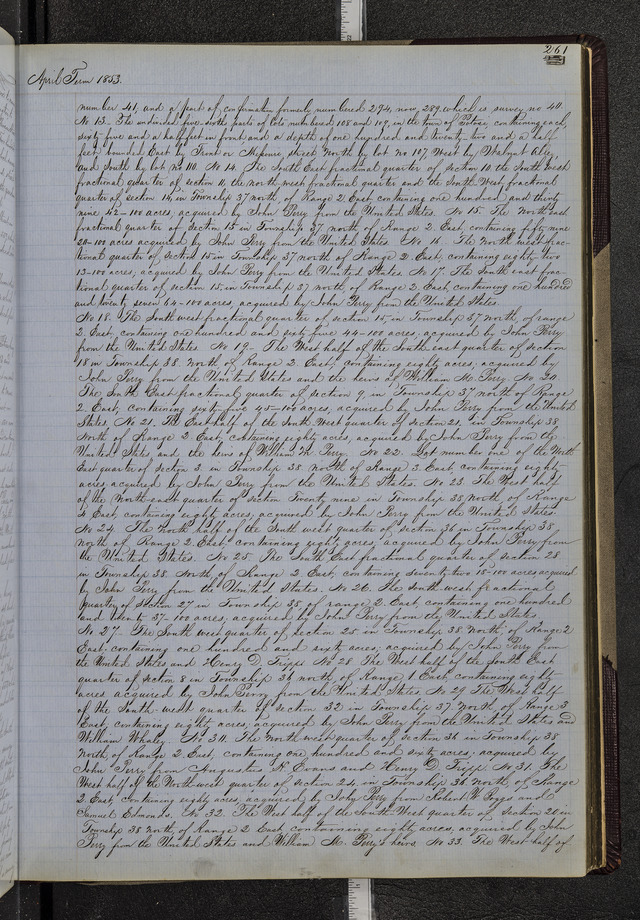 261
April Term 1853.
number 41, and a part of confirmation formerly numbered 294, now 289, which is survey no 40.
No 13. The undivided five sixth parts of lots numbered 108 and 109, in the town of Potosi, containing each,
sixty five and a half feet in front and a depth of one hundred and twenty two and a half
feet, bounded East by Front or Mine street North by lot No 107, West by Walnut alley
and South by lot No 110. No 14. The South East fractional quarter of Section 10, the South west
fractional quarter of section 11, the north west fractional quarter and the South West fractional
quarter of section 14, in Township 37 north of Range 2 East containing one hundred and thirty
nine 42-100 acres, acquired by John Perry from the United States. No 15. The North east
fractional quarter of Section 15 in Township 37 north of Range 2 East, containing fifty nine
20-100 acres acquired by John Perry from the United States. No 16. The North west frac-
tional quarter of Section 15 in Township 37 north of Range 2 East, containing eighty two
13-100 acres, acquired by John Perry from the United States. No 17. The South east frac-
tional quarter of section 15, in Township 37 north of Range 2 East, containing one hundred
and twenty seven 64-100 acres, acquired by John Perry from the United States.
No 18. The South west fractional quarter of section 15, in Township 37 north, of range
2 East, containing one hundred and sixty five 44-100 acres, acquired by John Perry
from the United States No 19. The West half of the South east quarter of Section
18 in Township 38 North of Range 2 East, containing eighty acres, acquired by
John Perry from the United States and the heirs of William M. Perry. No 20.
The South East fractional quarter of section 9, in Township 37 north of Range
2 East, containing sixty five 45-100 acres, acquired by John Perry from the United
States. No 21. The East half of the South West quarter of Section 21, in Township 38
North of Range 2 East, containing eighty acres, acquired by John Perry from the
United States and the heirs of William M Perry. No 22. Lot number one of the North
East quarter of Section 3 in Township 38 north of Range 3 East, containing eighty
acres acquired by John Perry from the United States. No 23. The West half
of the North east quarter of Section Twenty nine in Township 38, North of Range
3 East, containing eighty acres, acquired by John Perry from the United States
No 24. The North half of the South west quarter of section 36 in Township 38,
north of Range 2 East, containing eighty acres, acquired by John Perry from
the United States. No 25. The South East fractional quarter of section 28
in Township 38 North, of Range 2 East, containing seventy two 15-100 acres acquired
by John Perry from the United States. No 26. The South west fractional
quarter of Section 27 in Township 38, of range 2 East, containing one hundred
and twenty 37-100 acres, acquired by John Perry from the United States
No 27. The South west quarter of section 25 in Township 38 North, of Range 2
East, containing one hundred and sixty acres, acquired by John Perry from
the United States and Henry D. Tripp. No 28. The West half of the South East
quarter of section 8 in Township 36 north, of Range 1 East, containing eighty
acres acquired by John Perry from the United States No 29 The West half
of the South west quarter of section 32 in Township 37, North of Range 3
East, containing eighty acres, acquired by John Perry from the United States and
William Whaley. No 30. The North west quarter of Section 36 in Township 38
North of Range 2 East, containing one hundred and sixty acres, acquired by
John Perry from Augustus H Evans and Henry D. Tripp. No 31. The
West half of the North west quarter of section 24, in Township 38 North of Range
2 East, containing eighty acres, acquired by John Perry from Robert W. Boggs and
Samuel Edmonds. No 32. The West half of the South West quarter of Section 20 in
Township 38 North of Range 2 East, containing eighty acres, acquired by John
Perry from the United States and William M. Perry's heirs. No 33. The West half of